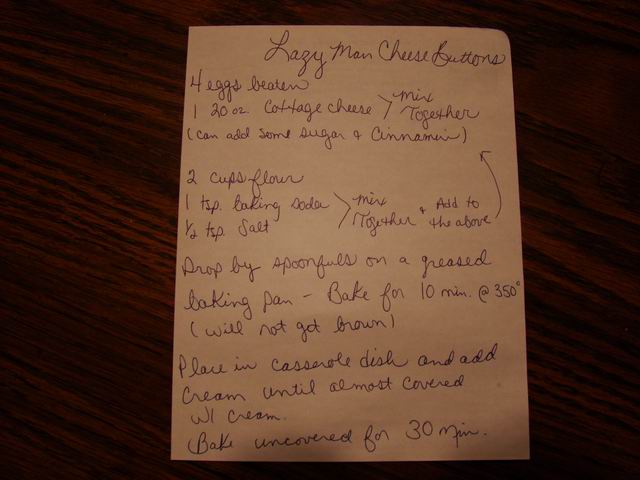 Lazy Man Cheese Buttons
4 eggs beaten
1 20 oz. Cottage cheese > Mix Together
(can add some sugar & Cinnamin)
2 cups flour
1 tsp. baking soda
1/2 tsp. Salt > Mix Together & Add to the above
Drop by spoonfuls on a greased
baking pan - Bake for 10 min. @ 350°
(will not get brown)
Place in casserole dish and add
Cream until almost covered
w/ cream.
Bake uncovered for 30 min.